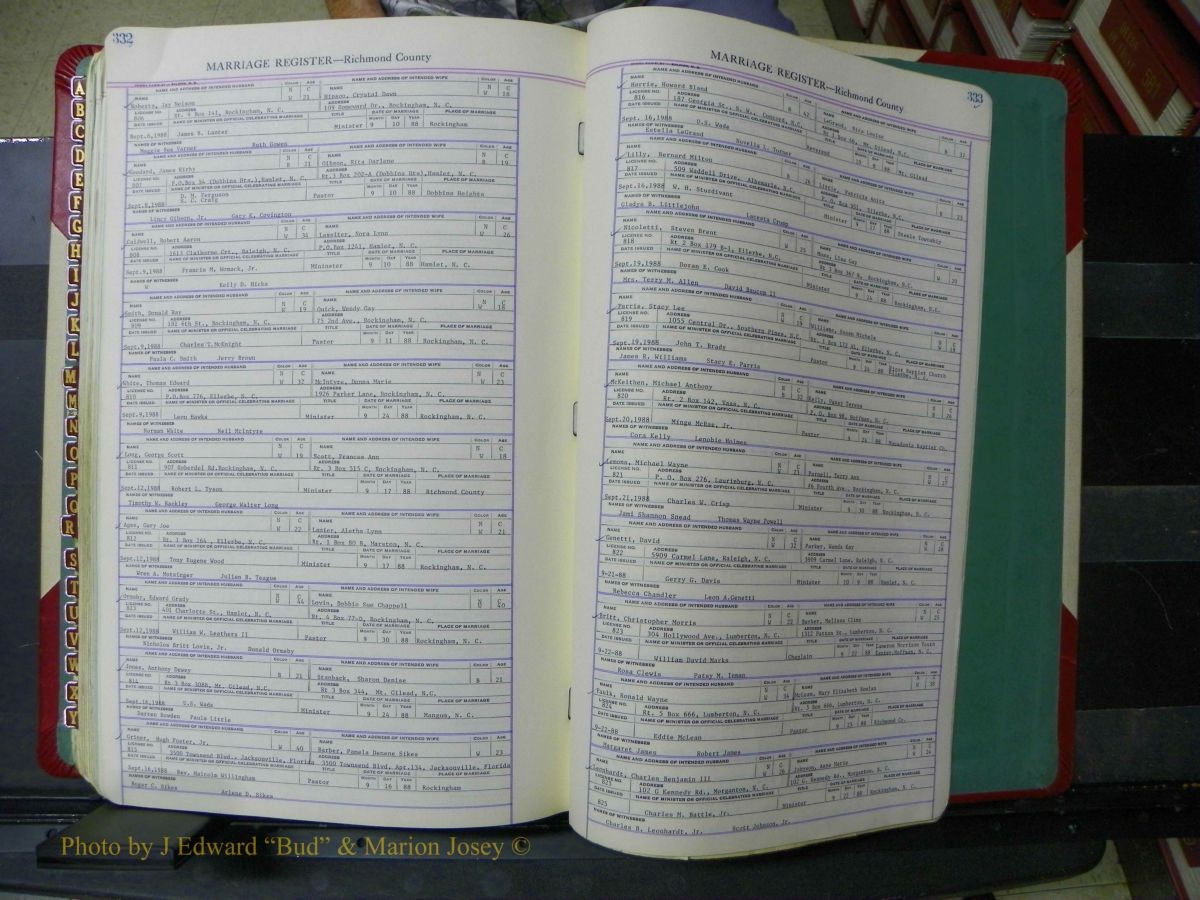 332
MARRIAGE REGISTER—Richmond County
NAME AND ADDRESS OF INTENDED HUSBAND NAME AND ADDRESS OF INTENDED WIFE
Roberts, Jay Nelson W 21 Hinson, Crystal Dawn W 18
806 Rt. 4 Box 141, Rockingham, N. C. 109 Homeward Dr., Rockingham, N. C.
DATE ISSUED NAME OF MINISTER OR OFFICIAL CELEBRATING MARRIAGE TITLE DATE OF MARRIAGE PLACE OF MARRIAGE
Sept.6,1988 James B. Lanter Minister 9 10 88 Rockingham
NAMES OF WITNESS
Maggie Bue Varner Ruth Gowen
Goodard, James Kirby B 21 Gibson, Rita Darlene B 19
807 P.O.Box 34 (Dobbins Hts.),Hamlet, N.C. Rt.3 Box 202-A (Dobbins Hts),Hamlet, N.C.
Sept.8,1988 D. W. Ferguson 9 10 88 Dobbins Heights
E. C. Craig
Lincy Gibson, Jr. Gary K. Covington
Caldwell, Robert Aaron W 34 Lassiter, Nora Lynn W 26
808 1611 Claiborne Crt., Raleigh, N. C. P.O.Box 1241, Hamlet, N. C.
Sept.9,1988 Francis M. Womack, Jr. Minister 9 10 88 Hamlet, N. C.
Kelly D. Hicks
Smith, Donald Ray W 19 Quick, Wendy Gay W 18
809 102 6th St., Rockingham, N. C. 75 2nd Ave., Rockingham, N. C.
Sept.9,1988 Charles T.McKnight Pastor 9 11 88 Rockingham, N. C.
Paula C. Smith Jerry Brown
White, Thomas Edward W 32 McIntyre, Donna Marie W 23
810 P.O.Box 776, Ellerbe, N. C. 1926 Parker Lane, Rockingham, N. C.
Sept.9,1988 Leon Hawks Minister 9 24 88 Rockingham, N. C.
Norman White Neil McIntyre
Long, George Scott W 19 Scott, Frances Ann W 18
811 907 Roberdel Rd.Rockingham, N. C. Rt. 3 Box 515 C, Rockingham, N. C.
Sept.12,1988 Robert L. Tyson Minister 9 17 88 Richmond County
Timothy W. Rackley George Walter Long
Apne, Gary Joe W 22 Lanier, Aletha Lynn W 21
812 Rt. 1 Box 264, Ellerbe, N. C. Rt. 1 Box 80 B, Marston, N. C.
Sept.12,1988 Tony Eugene Wood Minister 9 17 88 Rockingham, N. C.
Wren A. Motsinger Julian B. Teague
Ormsby, Edward Grady W 44 Lovin, Bobbie Sue Chappell W 40
813 401 Charlotte St., Hamlet, N. C. Rt. 4 Box 77-D, Rockingham, N. C.
Sept.12,1988 William W. Leathers II Pastor 9 30 88 Rockingham, N. C.
Nicholas Britt Lovin, Jr. Donald Ormsby
Jones, Anthony Dewey B 21 Stanback, Sharon Denise B 21
814 Rt 3 Box 308B, Mt. Gilead, N.C. Rt 3 Box 344, Mt. Gilead, N.C.
Sept.16,1988 O.S. Wade Minister 9 24 88 Mangum, N. C.
Darren Bowden Paula Little
Griner, Hugh Foster, Jr. W 40 Barber, Pamela Denene Sikes W 23
815 3500 Townsend Blvd., Jacksonville, Florida 3500 Townsend Blvd, Apt.134, Jacksonville, Florida
Sept.16,1988 Rev. Malcolm Willingham Pastor 9 16 88 Rockingham
Roger C. Sikes Arlene D. Sikes
333
MARRIAGE REGISTER—Richmond County
Harris, Howard Bland B 42 LeGrand, Rita Levine B 32
816 187 Georgia St., S. W., Concord, N.C.
Sept. 16,1988 O.S. Wade Reverend 88 Mt. Gilead
Estella LeGrand Novella L. Turner
Lilly, Bernard Milton B 26 Little, Patricia Anita B 23
817 509 Waddell Drive, Albemarle, N.C. P. O. Box 301, Ellerbe, N.C.
Sept.16,1988 W. H. Sturdivant Minister 88 Steele Township
Gladys B. Littlejohn Lacenta Crump
Nicoletti, Steven Brent W 25 Moore, Lisa Gay W 20
818 Rt 2 Box 179 E-1, Ellerbe, N.C. Rt 3 Box 367 N, Rockingham, N.C.
Sept.19,1988 Doran E. Cook Minister 9 24 88 Rockingham, N. C.
Mrs. Terry M. Allen David Baucom II
Parris, Stacy Lee W 19 Williams, Susan Michele
819 1055 Central Dr., Southern Pines, N.C. Rt. 1 Box 172 A1, Ellerbe, N. C.
Sept.19,1988 John T. Brady Pastor 9 24 88 First Baptist Church
James R. Williams Stacy E. Parris
McKeithen, Michael Anthony Kelly, Janet Teresa
820 Rt. 2 Box 142, Vass, N. C. P. O. Box 98, Hoffman, N. C.
Sept.20,1988 Minge McRae, Jr. Pastor 9 24 88 Macedonia Baptist Ch.
Cora Kelly Lenobie Holmes
Lemons, Michael Wayne Parnell, Terry Ann
821 P. O. Box 276, Laurinburg, N. C. 26 Fourth Ave., Rockingham, N. C.
Sept.21,1988 Charles W. Crisp Minister 9 30 88 Rockingham, N. C.
Jami Shannon Snead Thomas Wayne Powell
Genetti, David W 32 Parker, Wanda Kay W 28
822 5909 Carmel Lane, Raleigh, N. C. 5909 Carmel Lane, Raleigh, N. C.
9-21-88 Gerry G. Davis Minister 10 88 Hamlet, N. C.
Rebecca Chandler Leon A.Genetti
Britt, Christopher Morris W 22 Barker, Melissa Clime W 25
823 304 Hollywood Ave., Lumberton, N. C. 1312 Patton St., Lumberton, N. C.
9-22-88 William David Marks Chaplain 9 22 88 Cameron Morrison Youth Center,Hoffman, N. C.
Rosa Clewis Patsy M. Inman
Faulk, Ronald Wayne W 34 McLean, Mary Elizabeth Nowlan W 38
824 Rt. 5 Box 666, Lumberton, N. C. Rt. 5 Box 666, Lumberton, N. C.
9-22-88 Eddie McLean Pastor 9 25 88 Richmond Co.
Margaret James Robert James
Leonhardt, Charles Benjamin III W 26 Johnson, Anne Marie W 24
825 102 G Kennedy Rd., Morganton, N. C. 102 G. Kennedy Rd., Morganton, N. C.
Charles M. Battle, Jr. Minister 9 22 88 Rockingham, N. C.
Charles B. Leonhardt, Jr. Scott Johnson, Jr.
A
B
C
D
E
F
G
H
I
J
K
L
M
Mc
N
O
P
Q
R
S
T
U
V
W
X
Y
Photo by J Edward “Bud” & Marion Josey ©